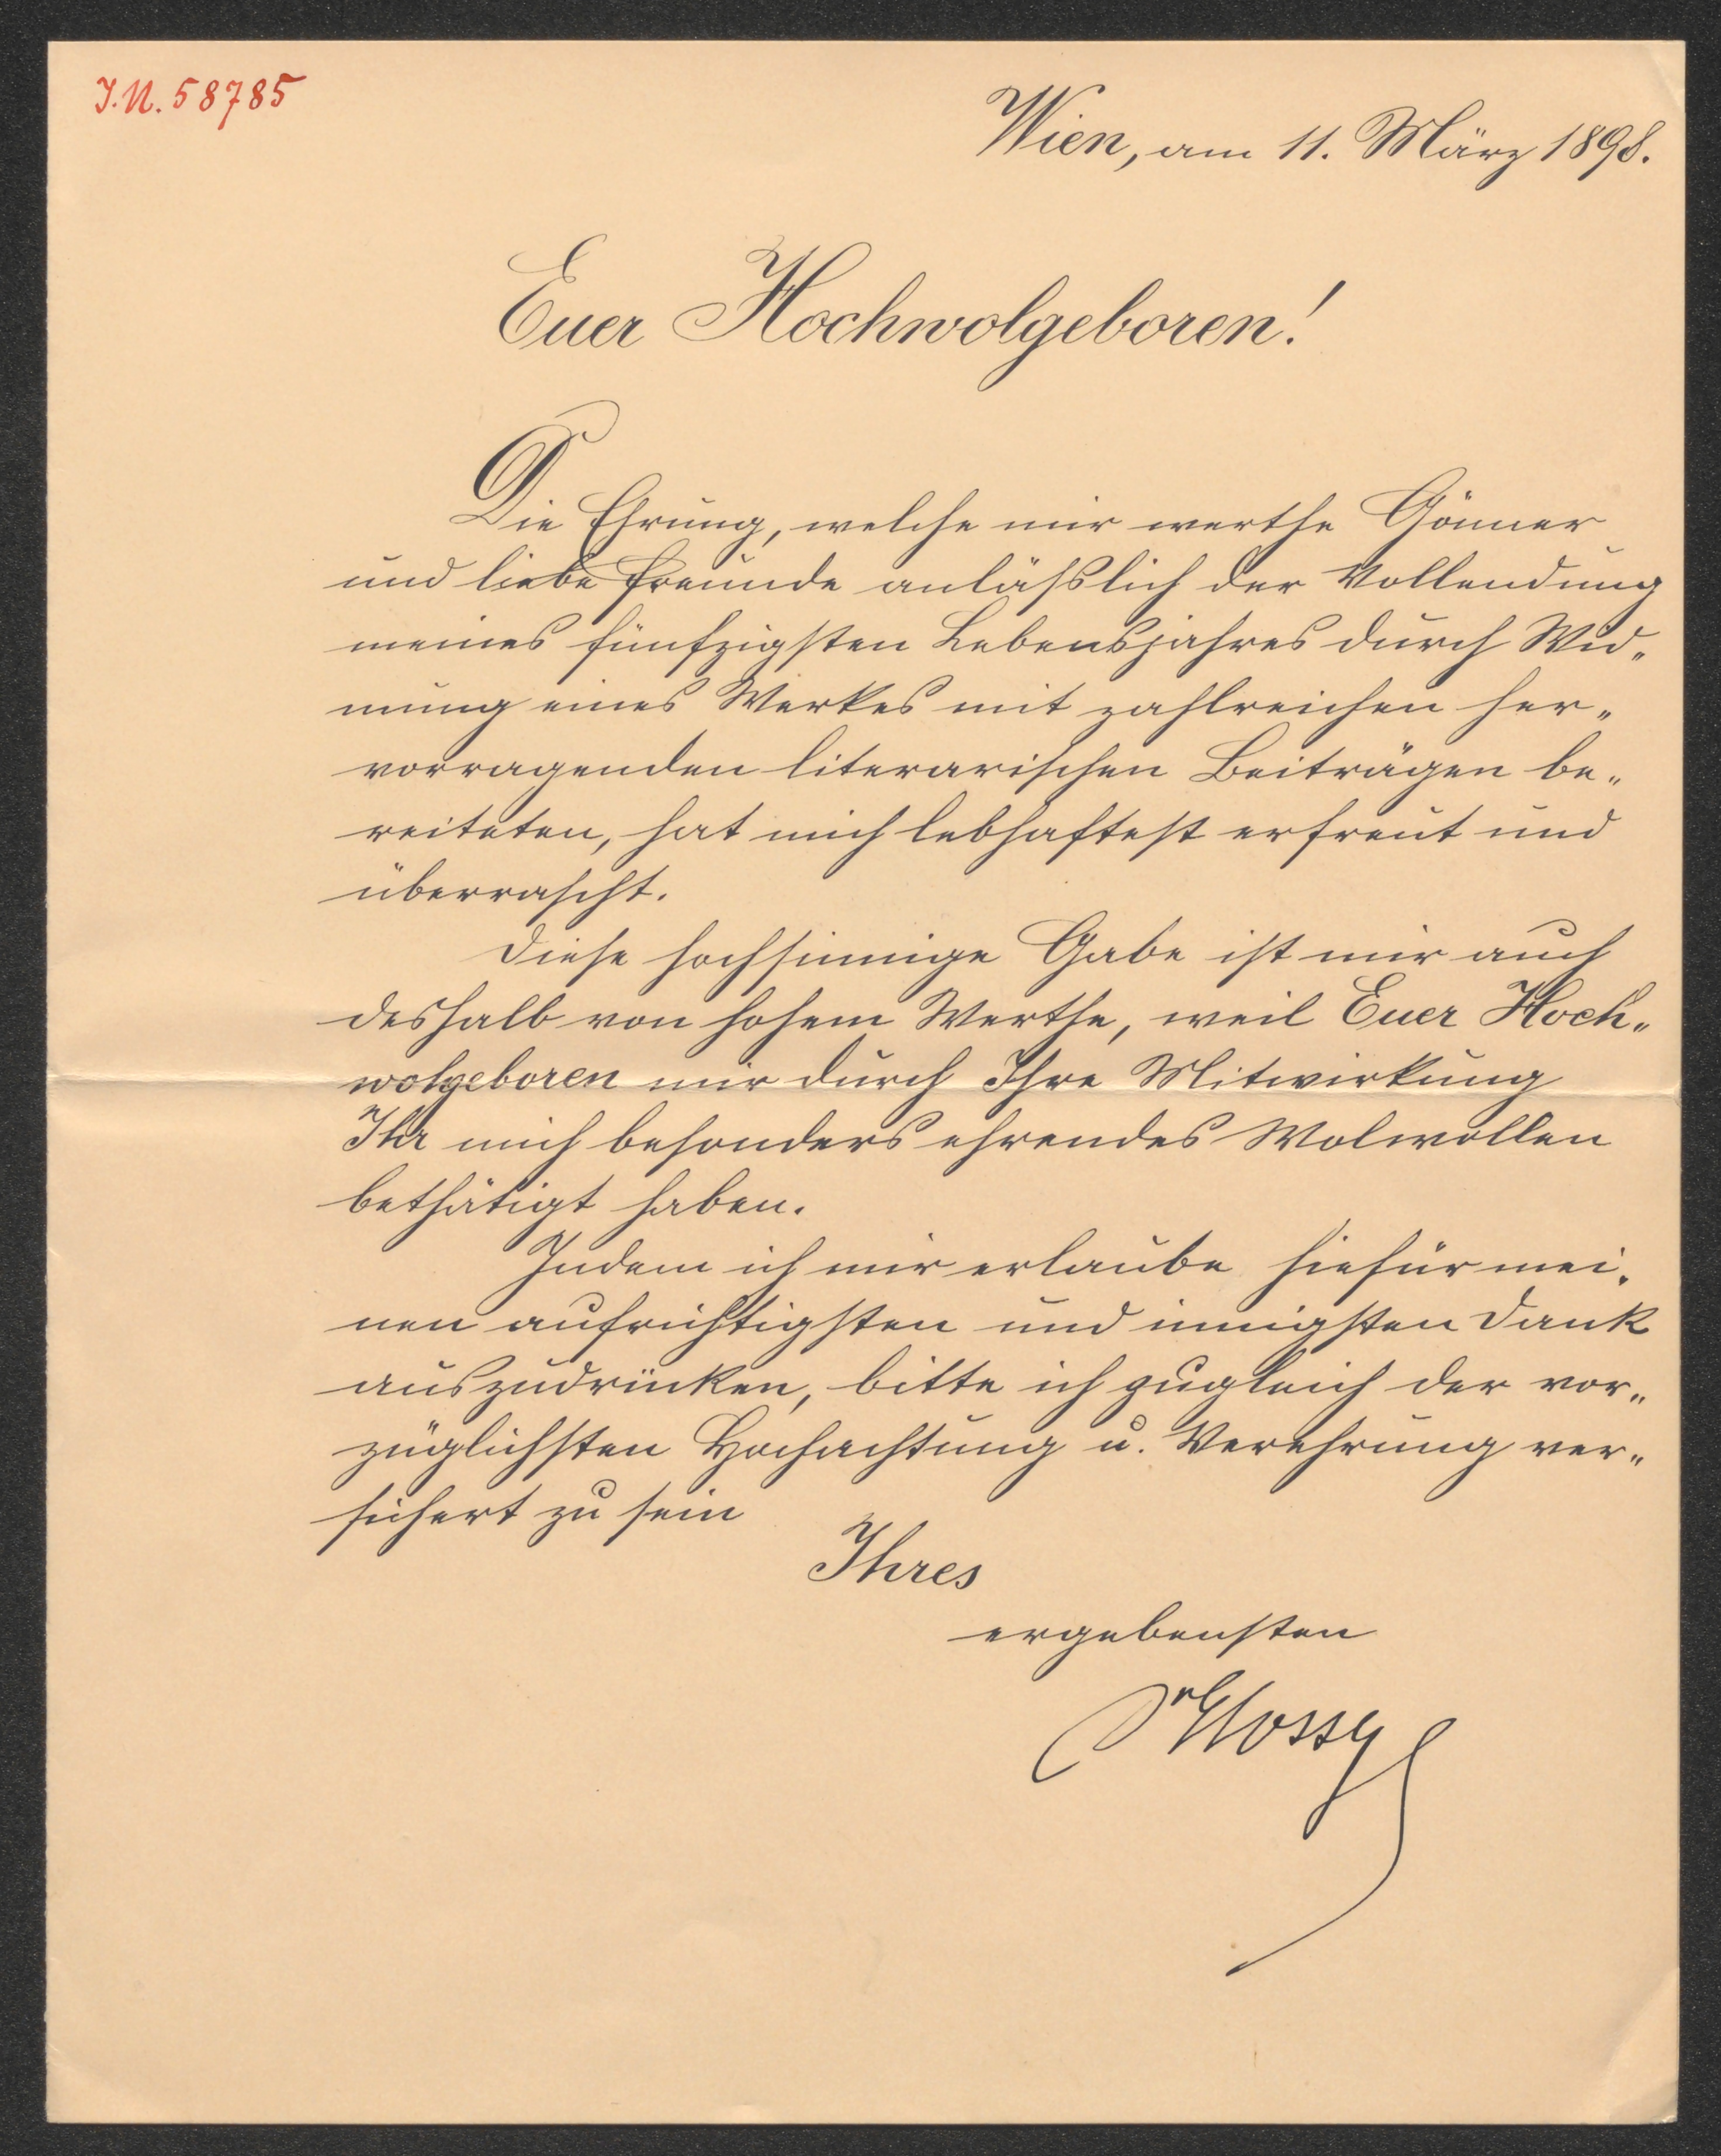 J.N. 58785
Wien, am 11. März 1898.
Euer Hochwolgeboren!
Die Ehrung, welche mir werthe Gönner
und liebe Freunde anläßlich der Vollendung
meines fünfzigsten Lebensjahres durch Wid„
mung eines Werkes mit zahlreichen her„
vorragenden literarischen Beiträgen be„
reiteten, hat mich lebhaftest erfreut und
überrascht.
Diese hochsinnige Gabe ist mir auch
deshalb von hohem Werthe, weil Euer Hoch„
wolgeboren mir durch Ihre Mitwirkung
Ihr mich besonders ehrendes Wolwollen
bethätigt haben.
Indem ich mir erlaube hiefür mei„
nen aufrichtigsten und innigsten Dank
auszudrücken, bitte ich zugleich der vor„
züglichsten Hochachtung u. Verehrung ver„
sichert zu sein
Ihres
ergebensten
Dr Glossy